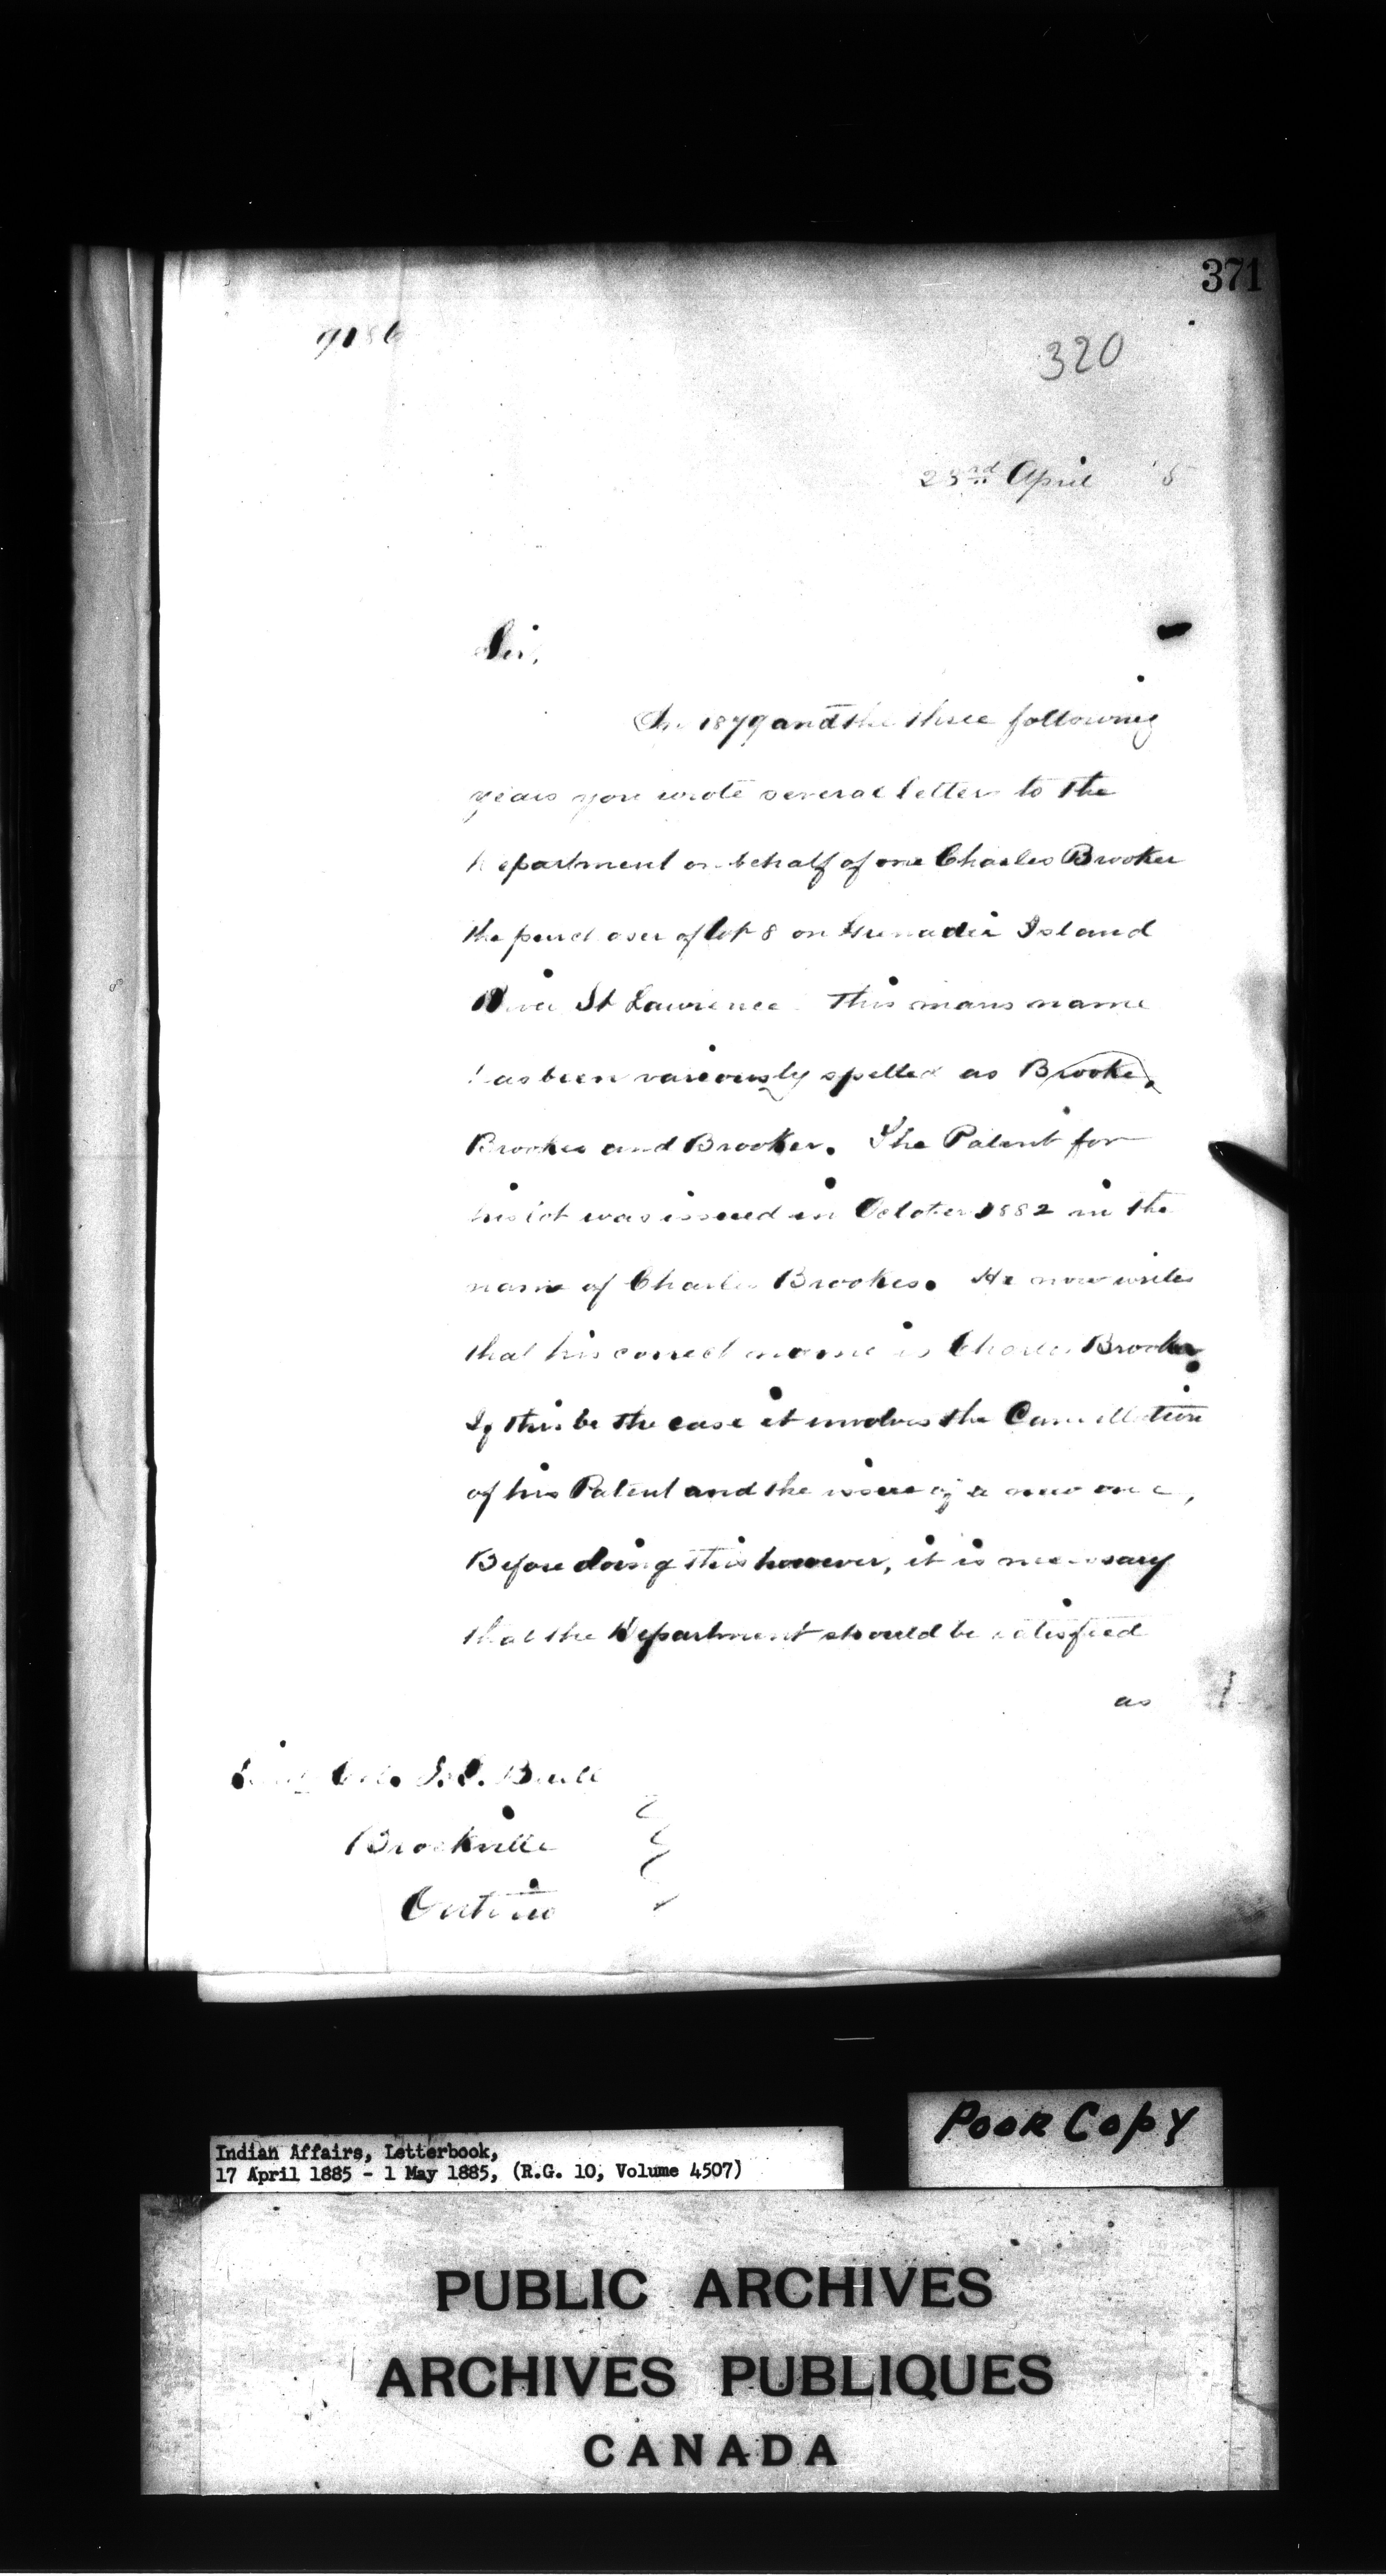 371
320
23rd April
Sir,
In 1879 and the three following
years you wrote several letters to the
Department on behalf of one Charles Brooker
the purchaser of lot 8 on Grenadier Island
River St Lawrence. This mans name
has been variously spelled as Brooke,
Brookes and Brooker. The Patent for
his lot was issued in October 1882 in the
name of Charles Brookes. He now writes
that his correct name is Charles Brooker.
If this be the case it involves the Cancellation
of his Patent and the issue of a new one,
Before doing this however, it is necessary
that the Department should be satisfied
as
Col. Buell
Brockville
Ontario
Poor Copy
Indian Affairs, Letterbook,
17 April 1885 - 1 May 1885, (R.G. 10, Volume 4507)
PUBLIC ARCHIVES
ARCHIVES PUBLIQUES
CANADA